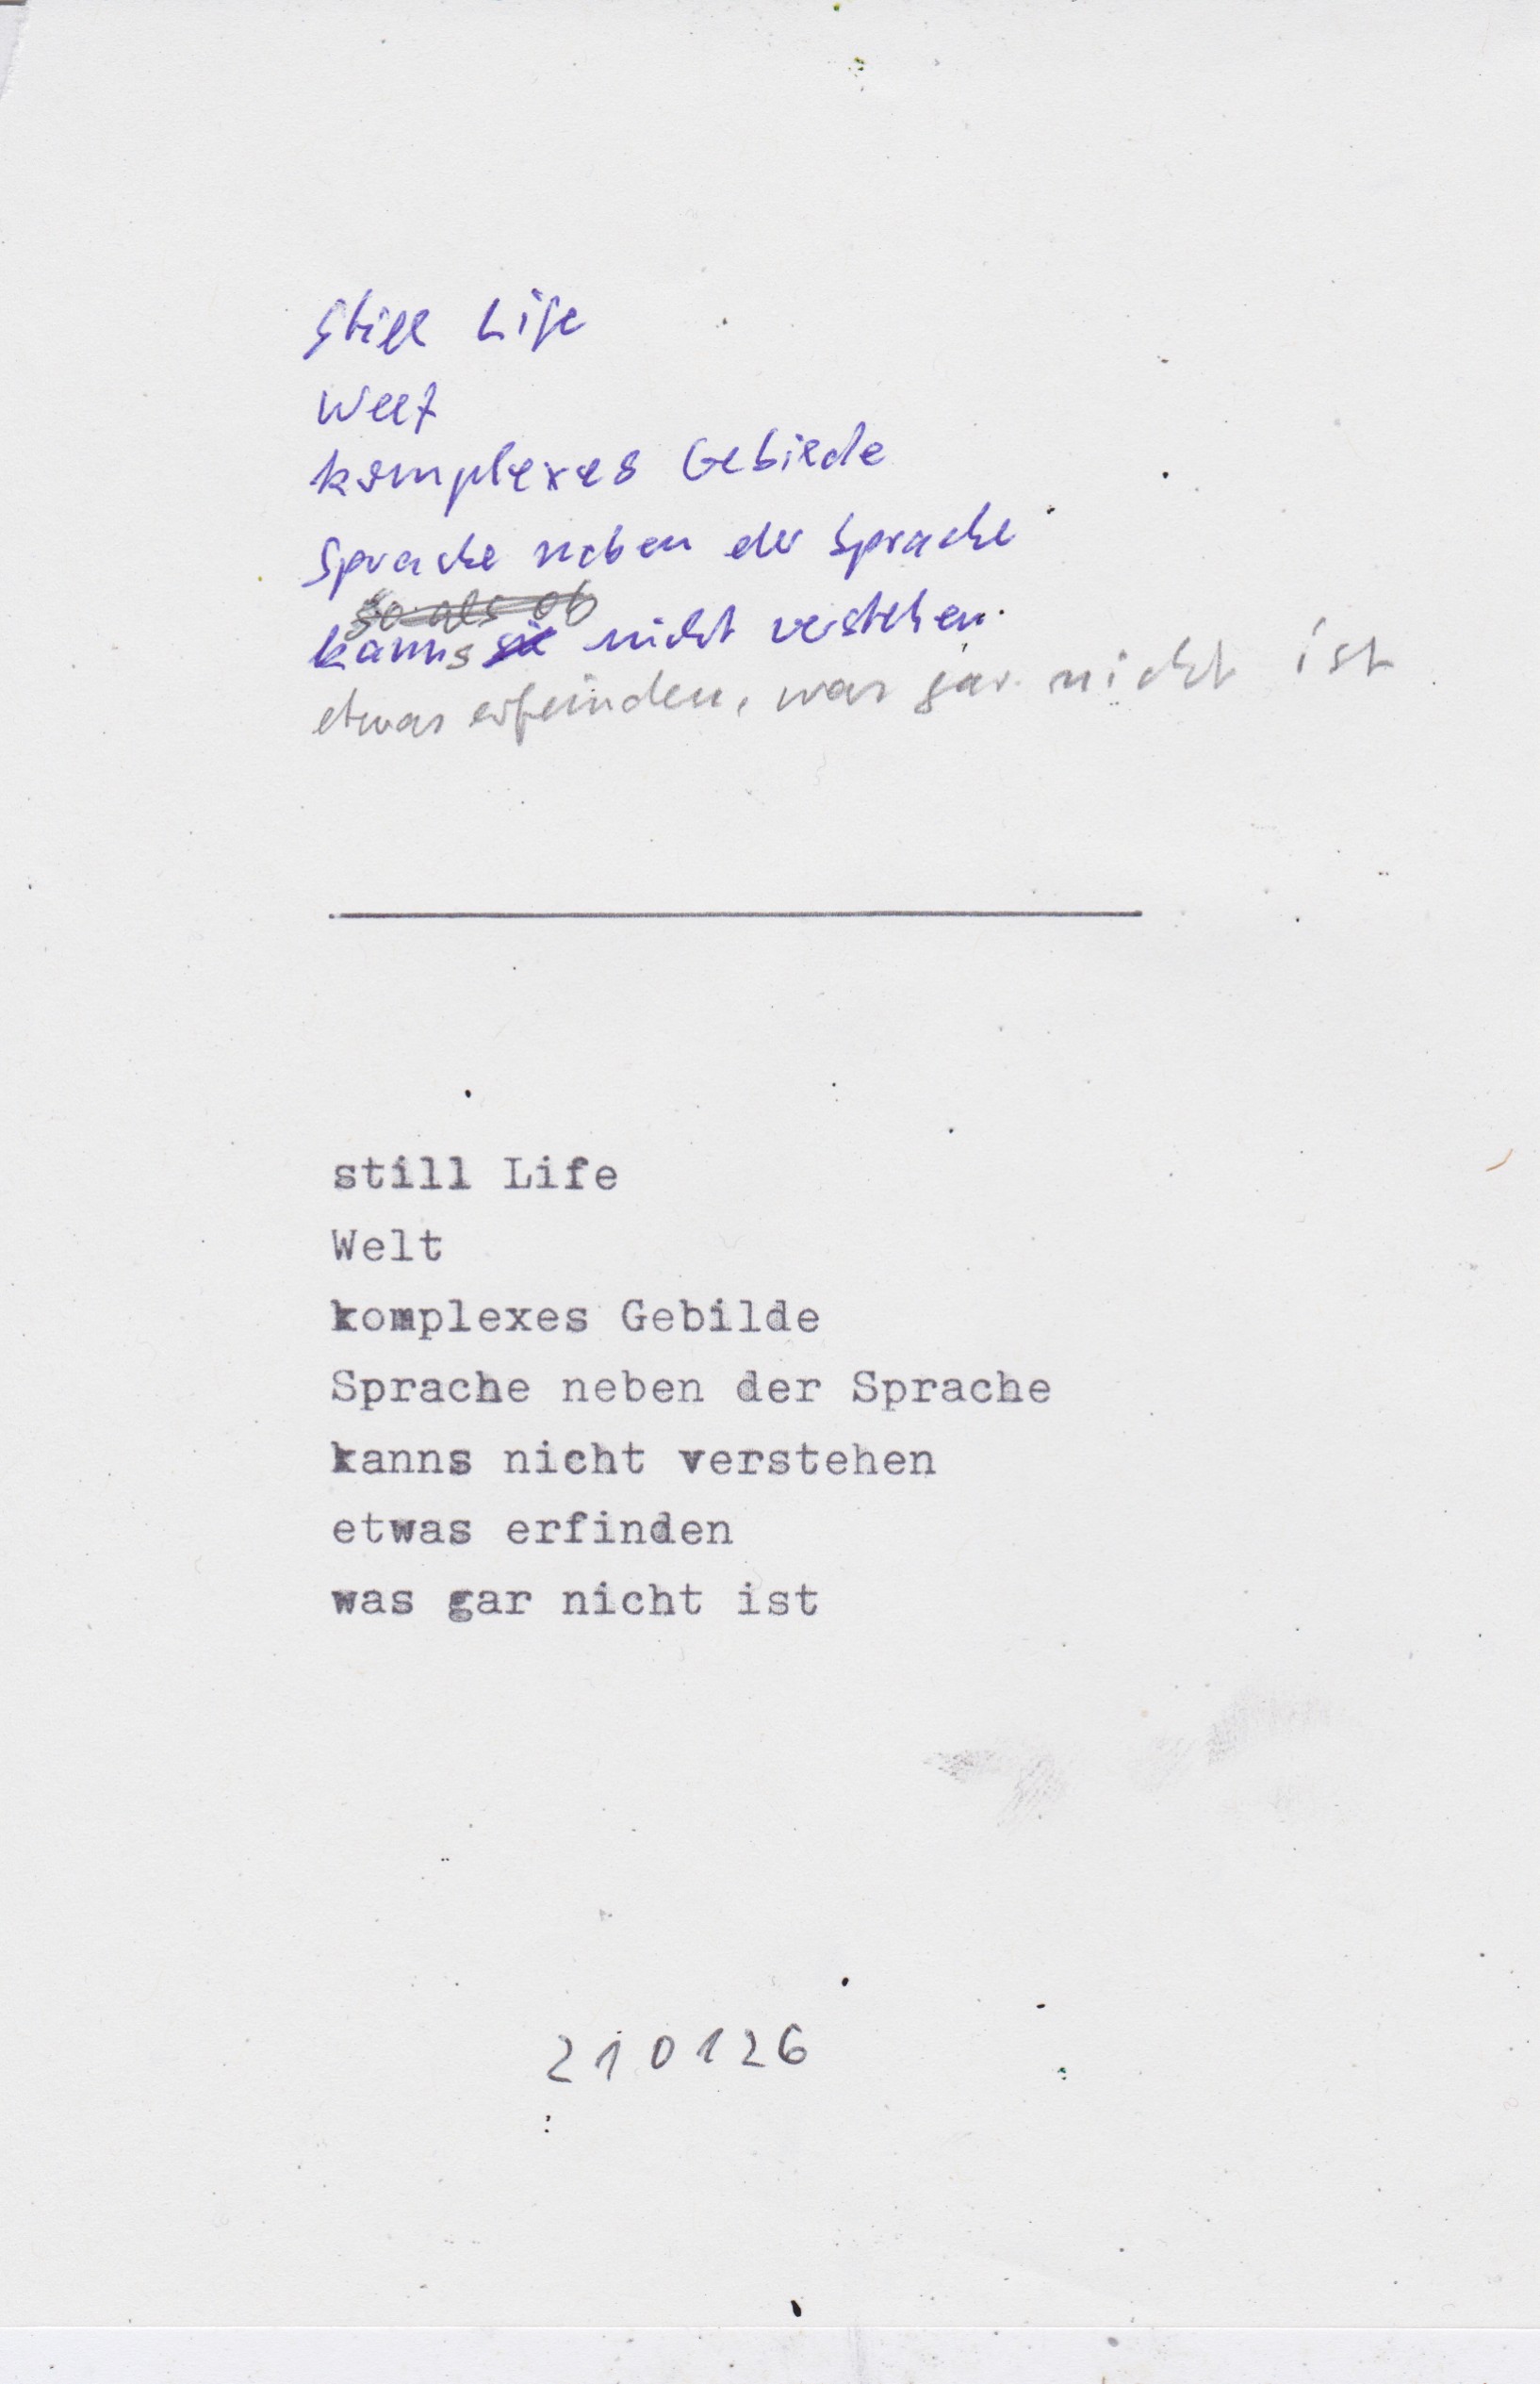 Still Life
Welt
komplexes Gebilde
Sprache neben der Sprache
so als ob
kanns sie nicht verstehen.
etwas erfinden, was gar nicht ist
still Life
Welt
komplexes Gebilde
Sprache neben der Sprache
kanns nicht verstehen
etwas erfinden
was gar nicht ist
210126